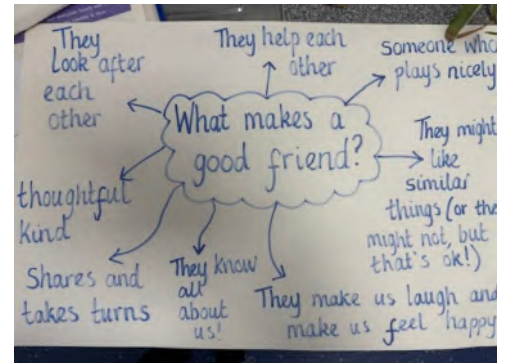 They
Look after
each
other
They help each
other
someone who
plays nicely
What makes a
good friend?
They might
like
similar
things (or the
might not, but
that's ok!)
thoughtful
kind
Shares and
takes turns
They know
all
about
us!
They make us laugh and
make us feel happy